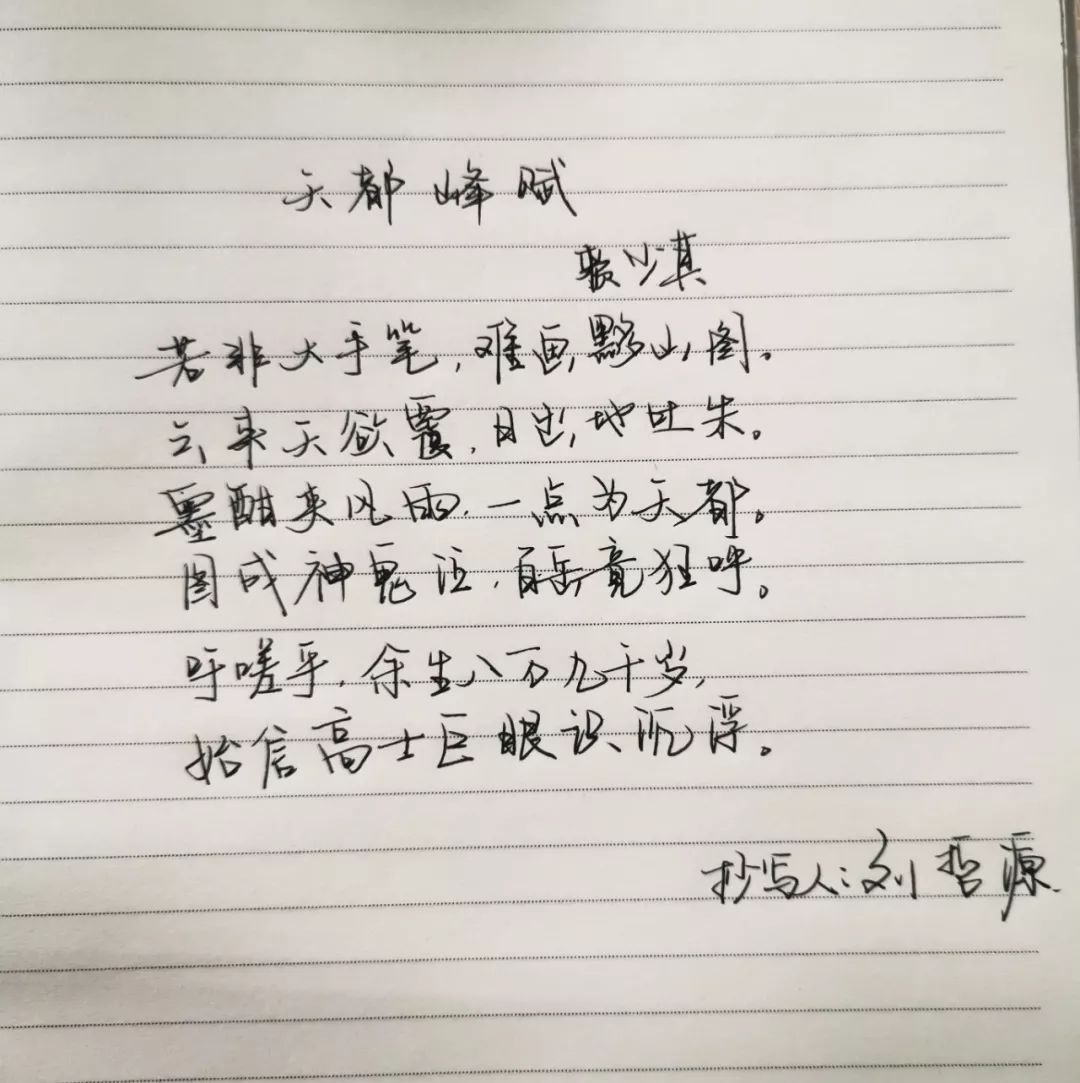 天都峰赋
少淇
若非大手笔，难画黟山图。
云来天欲覆，日出地吐朱。
墨酣夹风雨，一点为天都。
图成神鬼泣，百岳竟狂呼。
吁嗟乎，余生八万九千岁，
始信高士巨眼识沉浮。
抄写人：刘哲源